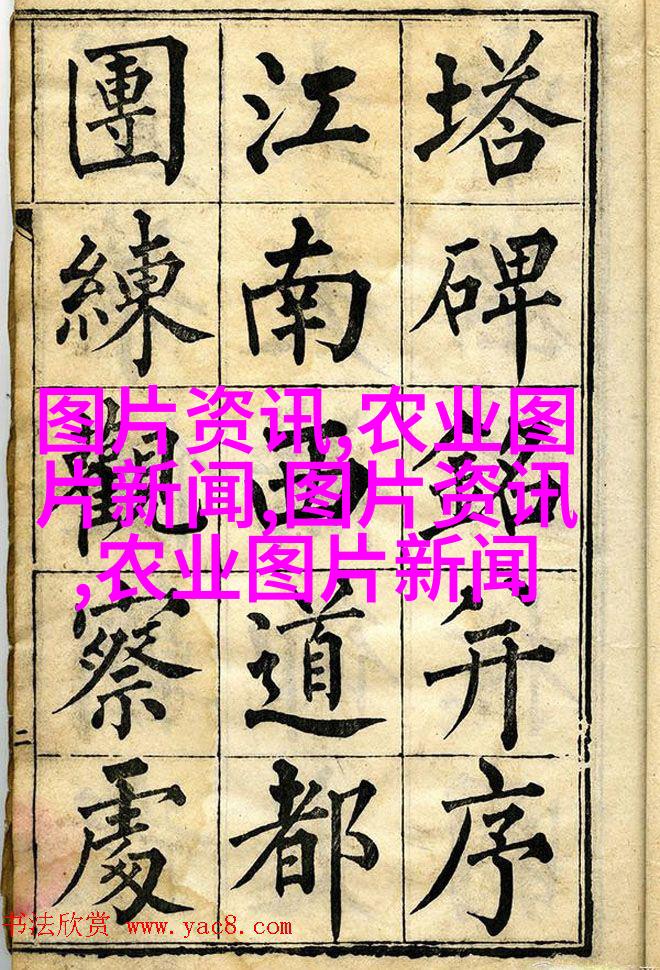 塔碑銘并序
江南西道都
團練觀察處
二
图片资讯,农业图
片新闻,图片资讯
,农业图片新闻
书法欣赏 www.yac8.com